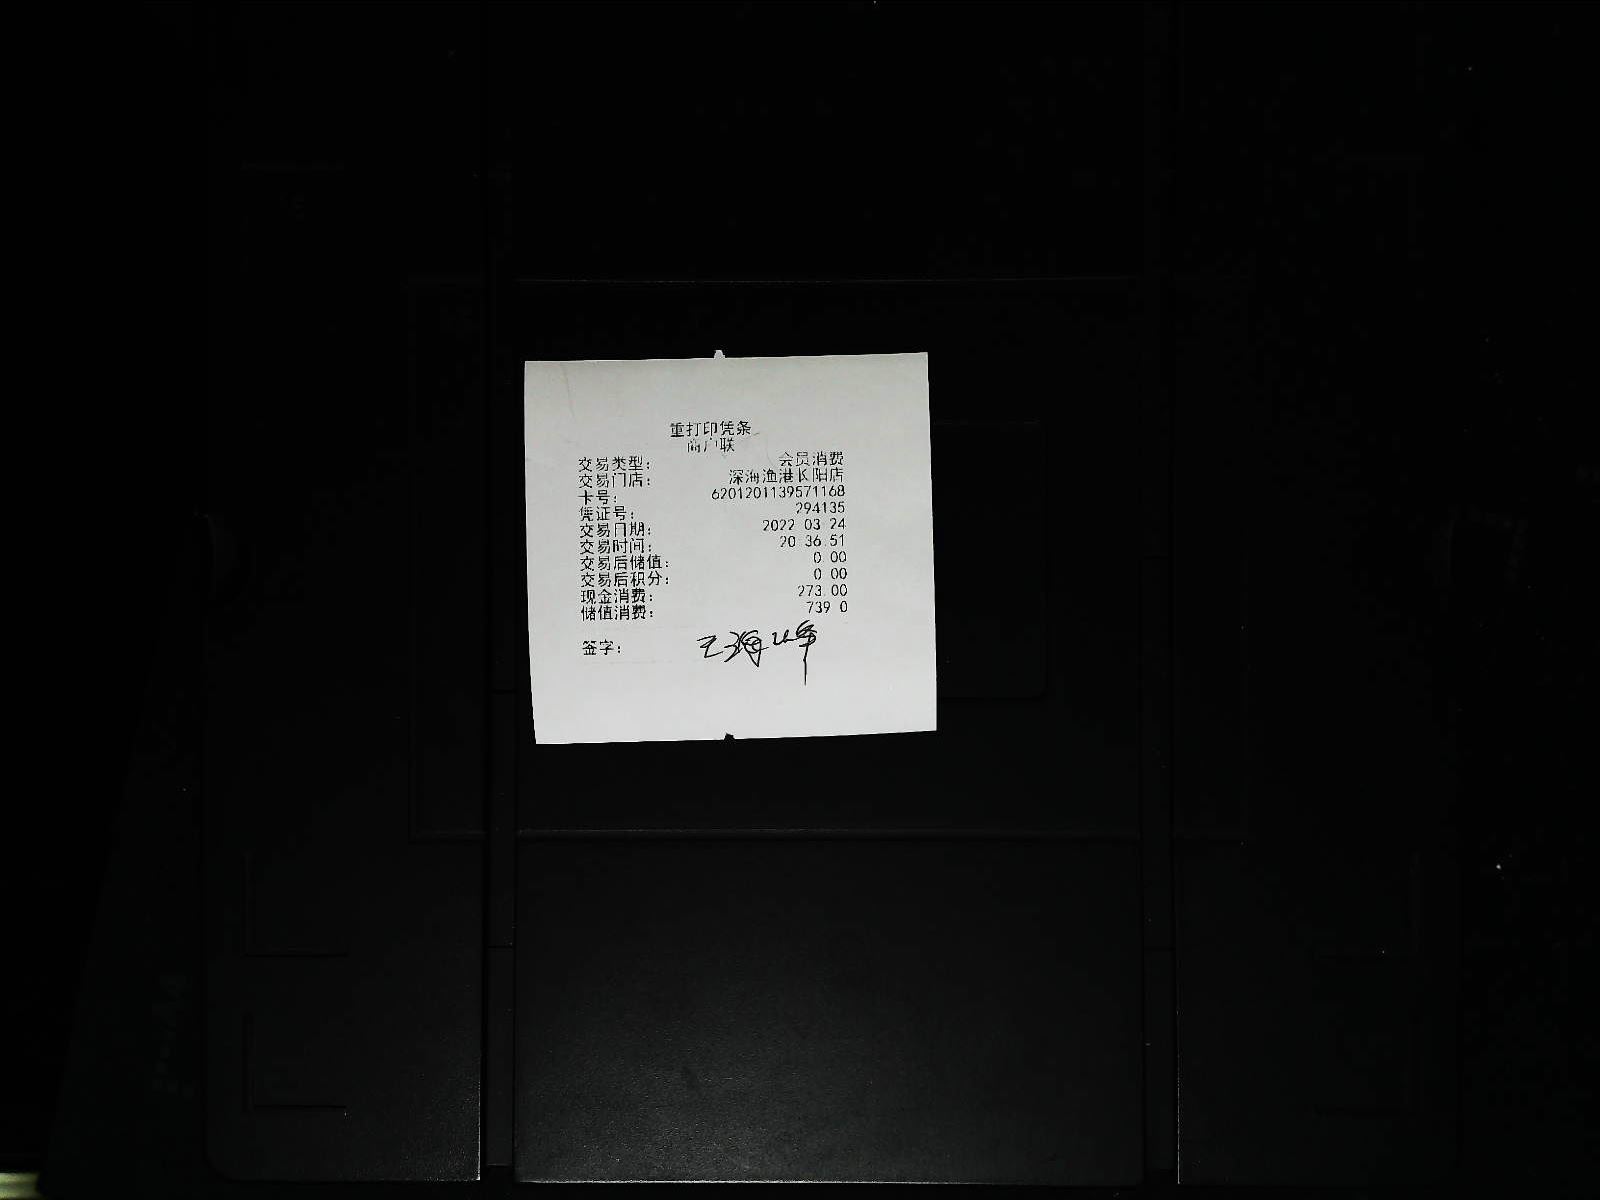 重打印凭条
商户联
交易类型: 会员消费
交易门店: 深海渔港长阳店
卡号: 6201201139571168
凭证号: 294135
交易日期: 2022 03 24
交易时间: 20 36 51
交易后储值: 0 00
交易后积分: 0 00
现金消费: 273.00
储值消费: 739 0
签字: 王海峰